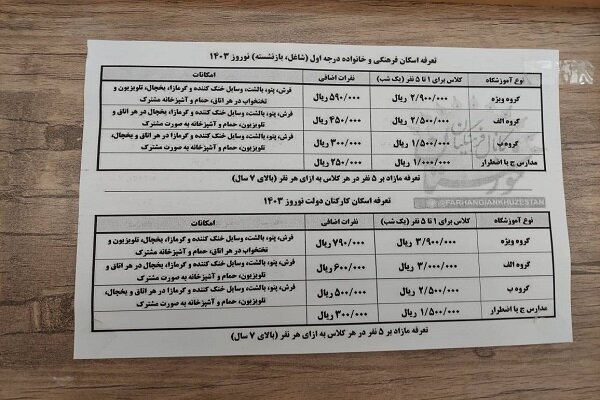 تعرفه اسکان فرهنگی و خانواده درجه اول (شاغل، بازنشسته) نوروز ۱۴۰۳
نوع آموزشگاه کلاس برای ۱ تا ۵ نفر (یک شب) نفرات اضافی امکانات
گروه ویژه ۲/۹۰۰/۰۰۰ ریال ۵۹۰/۰۰۰ ریال فرش، پتو، بالشت، وسایل خنک کننده و گرمازا، یخچال، تلویزیون و
تختخواب در هر اتاق، حمام و آشپزخانه مشترک
گروه الف ۲/۵۰۰/۰۰۰ ریال ۴۵۰/۰۰۰ ریال فرش، پتو، بالشت، وسایل خنک کننده و گرمازا، یخچال در هر اتاق و
تلویزیون، حمام و آشپزخانه به صورت مشترک
گروه ب ۱/۵۰۰/۰۰۰ ریال ۳۰۰/۰۰۰ ریال فرش، پتو، بالشت، وسایل خنک کننده و گرمازا در هر اتاق و یخچال،
تلویزیون، حمام و آشپزخانه به صورت مشترک
مدارس ج یا اضطرار ۱/۰۰۰/۰۰۰ ریال ۲۵۰/۰۰۰ ریال
تعرفه مازاد بر ۵ نفر در هر کلاس به ازای هر نفر (بالای ۷ سال)
@FARHANGIANKHUZESTAN
تعرفه اسکان کارکنان دولت نوروز ۱۴۰۳
نوع آموزشگاه کلاس برای ۱ تا ۵ نفر (یک شب) نفرات اضافی امکانات
گروه ویژه ۳/۹۰۰/۰۰۰ ریال ۷۹۰/۰۰۰ ریال فرش، پتو، بالشت، وسایل خنک کننده و گرمازا، یخچال، تلویزیون و
تختخواب در هر اتاق، حمام و آشپزخانه مشترک
گروه الف ۳/۰۰۰/۰۰۰ ریال ۶۰۰/۰۰۰ ریال فرش، پتو، بالشت، وسایل خنک کننده و گرمازا، یخچال در هر اتاق و
تلویزیون، حمام و آشپزخانه به صورت مشترک
گروه ب ۲/۵۰۰/۰۰۰ ریال ۵۰۰/۰۰۰ ریال فرش، پتو، بالشت، وسایل خنک کننده و گرمازا در هر اتاق و یخچال،
تلویزیون، حمام و آشپزخانه به صورت مشترک
مدارس ج یا اضطرار ۱/۵۰۰/۰۰۰ ریال ۳۰۰/۰۰۰ ریال
تعرفه مازاد بر ۵ نفر در هر کلاس به ازای هر نفر (بالای ۷ سال)